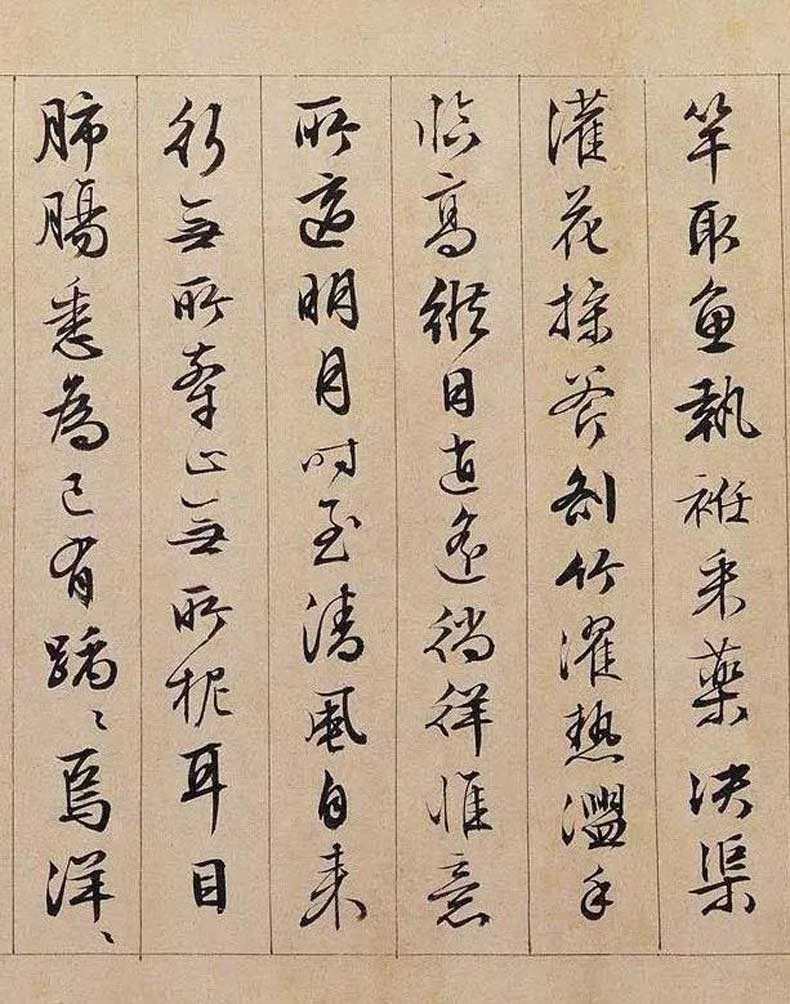 竿取魚執衽采藥决渠
灌花操斧剖竹濯熱盥手
臨高縱目逍遙徜徉惟意
所適明月時至清風自来
行無所牽止無所柅耳目
肺腸悉為己有踽〻焉洋〻